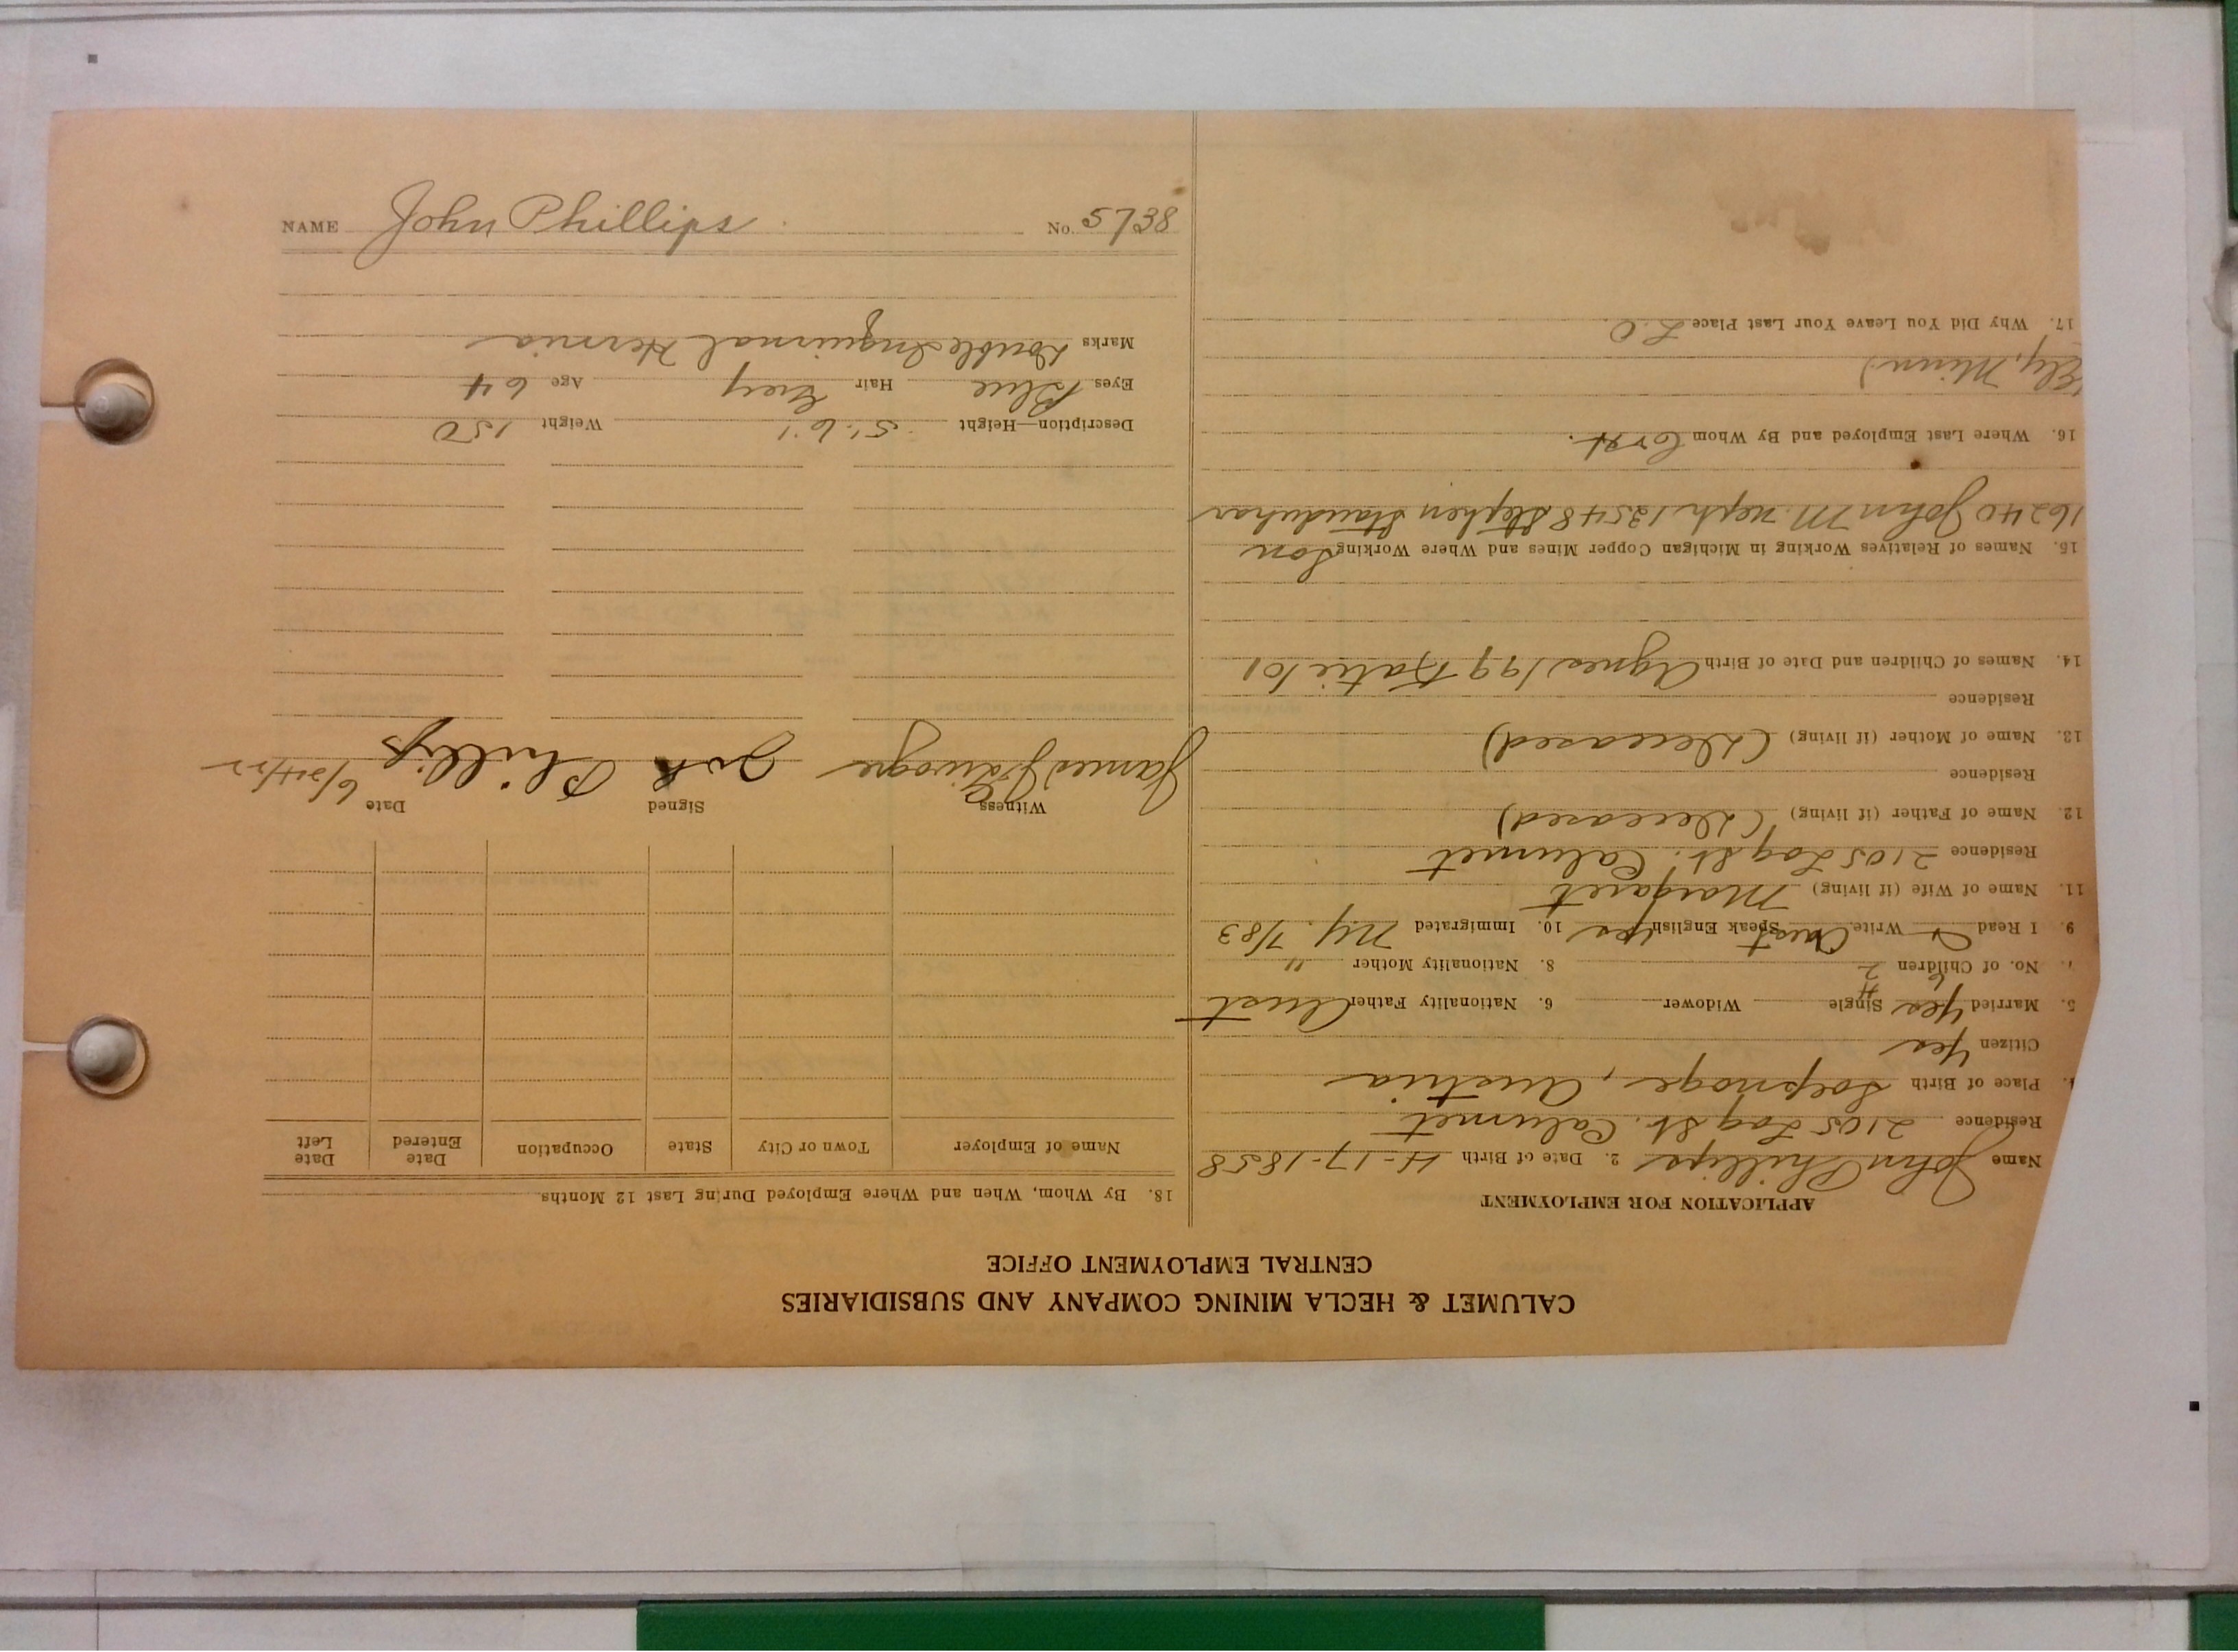 NAME John Phillips No. 5738
CALUMET & HECLA MINING COMPANY AND SUBSIDIARIES
CENTRAL EMPLOYMENT OFFICE
APPLICATION FOR EMPLOYMENT
Name John Phillips 2. Date of Birth 4-17-1858
Residence 2105 Log St. Calumet
Place of Birth Austria
Citizen Yes
5. Married Yes Single Widower 6. Nationality Father Aust
7. No. of Children 2 8. Nationality Mother "
9. I Read Write Aust Speak English Yes 10. Immigrated N.Y. 7/83
11. Name of Wife (if living) Margaret
Residence 2105 Log St. Calumet
12. Name of Father (if living) (Deceased)
Residence
13. Name of Mother (if living) (Deceased)
Residence
14. Names of Children and Date of Birth Agnes /99 Katie /01
15. Names of Relatives Working in Michigan Copper Mines and Where Working Son
16240 John M. neph. 12548 Stephen Standuhar
16. Where Last Employed and By Whom
(Ely, Minn)
17. Why Did You Leave Your Last Place L.O
18. By Whom, When and Where Employed During Last 12 Months
Name of Employer Town or City State Occupation Date Entered Date Left
Witness Signed Date
James John Phillips 6/24/22
Description—Height 5' 6" Weight 150
Eyes Blue Hair Grey Age 64
Marks Double Inguinnal Hernia